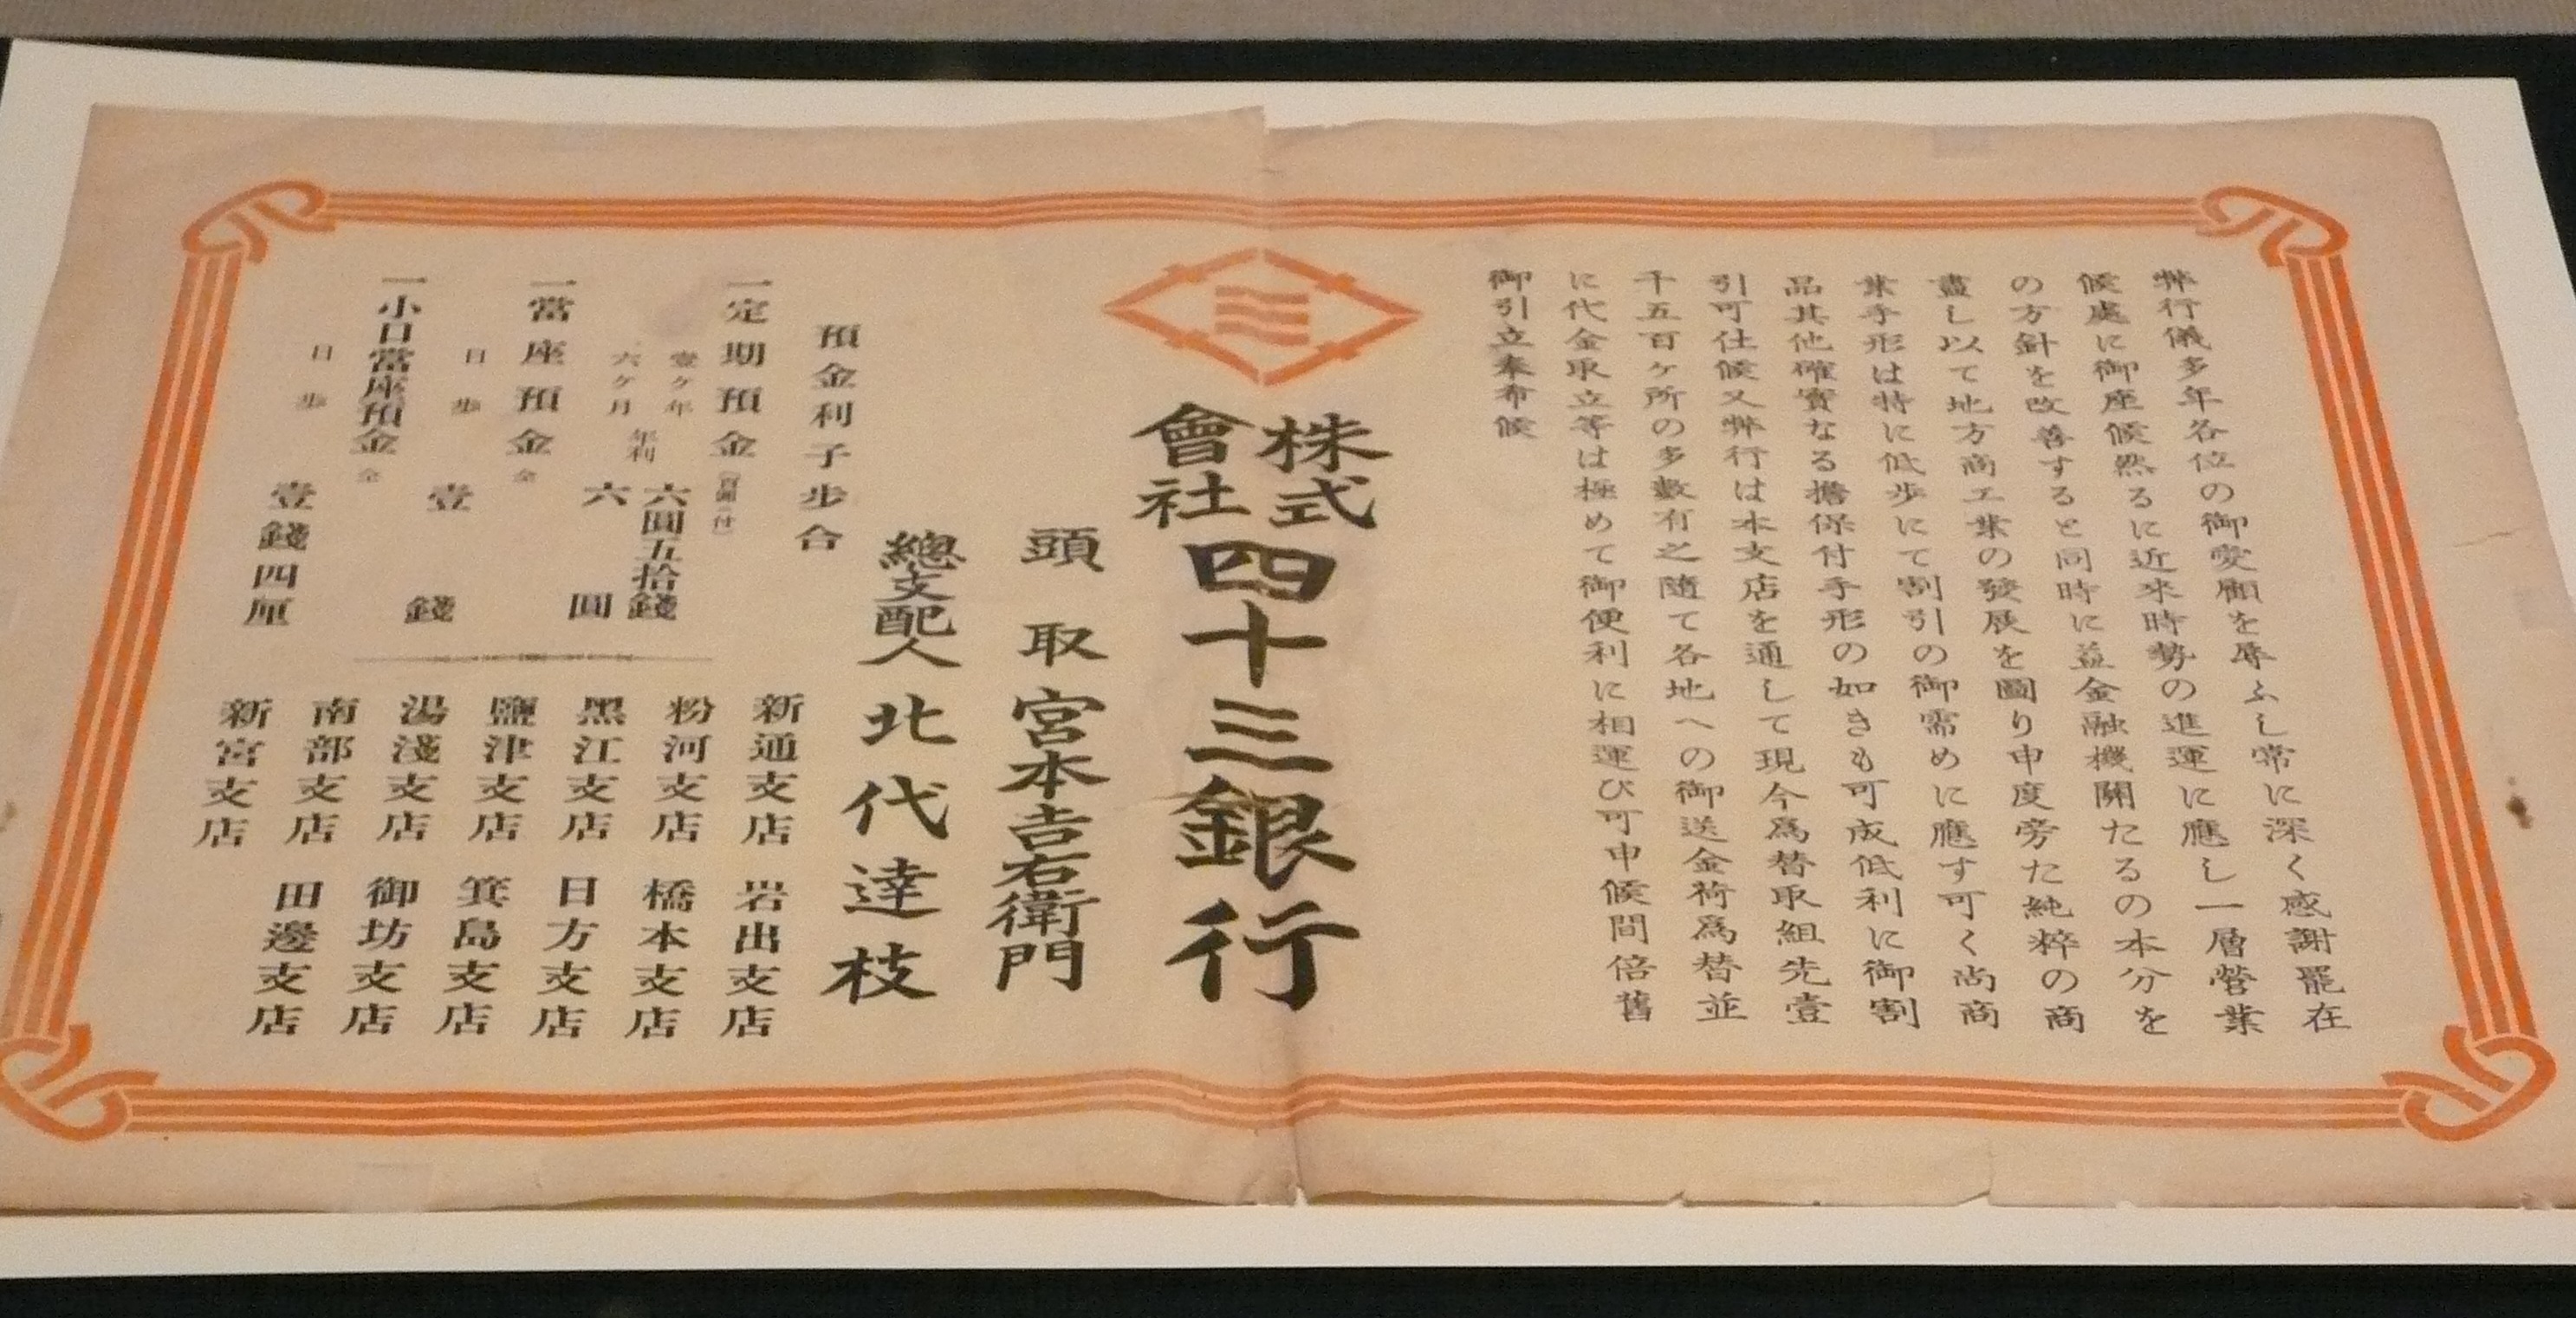 弊行儀多年各位の御愛顧を辱ふし常に深く感謝罷在
候處に御座候然るに近來時勢の進運に應し一層營業
の方針を改善すると同時に益金融機關たるの本分を
盡し以て地方商工業の發展を圖り申度旁た純粹の商
業手形は特に低步にて割引の御需めに應す可く尚商
品其他確實なる擔保付手形の如きも可成低利に御割
引可仕候又弊行は本支店を通して現今爲替取組先壹
千五百ヶ所の多數有之隨て各地への御送金荷爲替並
に代金取立等は極めて御便利に相運び可申候間倍舊
御引立奉希候
株式會社四十三銀行
頭取 宮本吉右衛門
總支配人 北代達枝
預金利子步合
一定期預金
壹ケ年 年利 六圓五拾錢
六ケ月 六圓
一當座預金 仝
日步 壹錢
一小口當座預金 仝
日步 壹錢四厘
新通支店 岩出支店
粉河支店 橋本支店
黑江支店 日方支店
鹽津支店 箕島支店
湯淺支店 御坊支店
南部支店 田邊支店
新宮支店